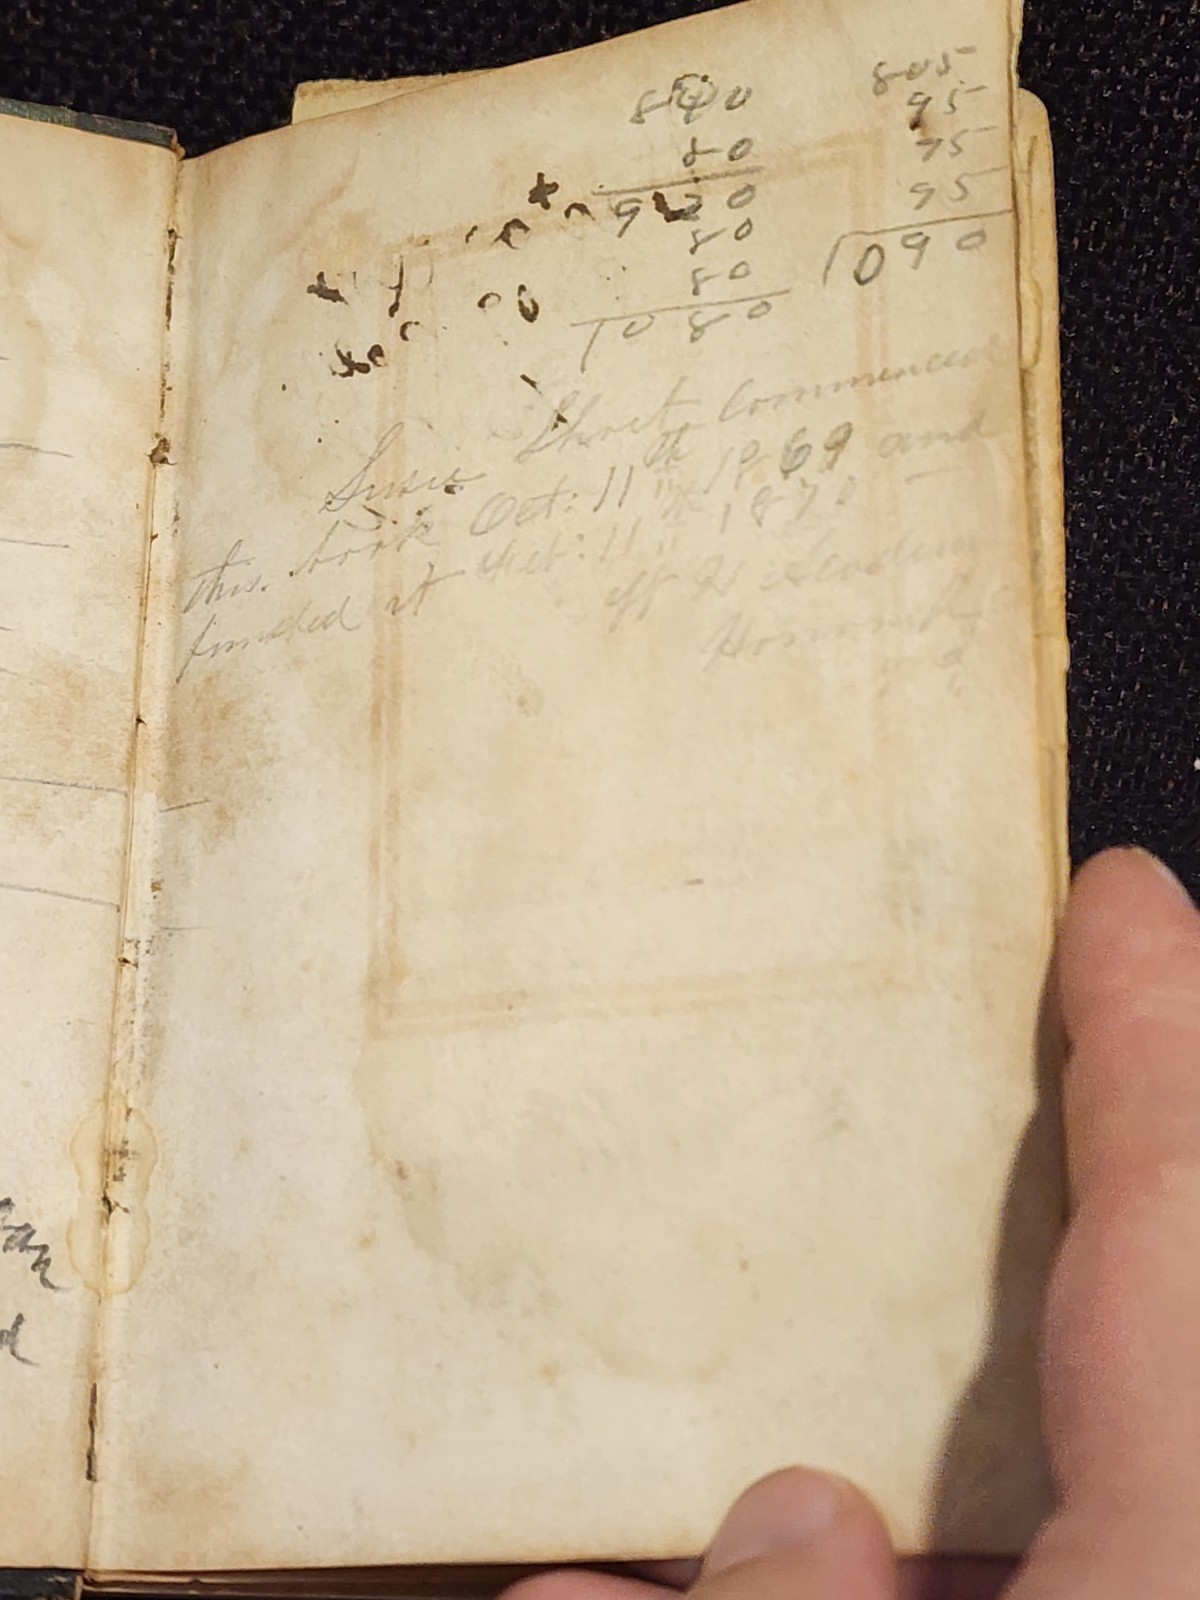 840
80
920
80
80
1080
805
95
75
95
1090
Susie Short Commenced
this book Oct: 11th 1869 and
finished it Oct: 11th 1870
Academy
an
d